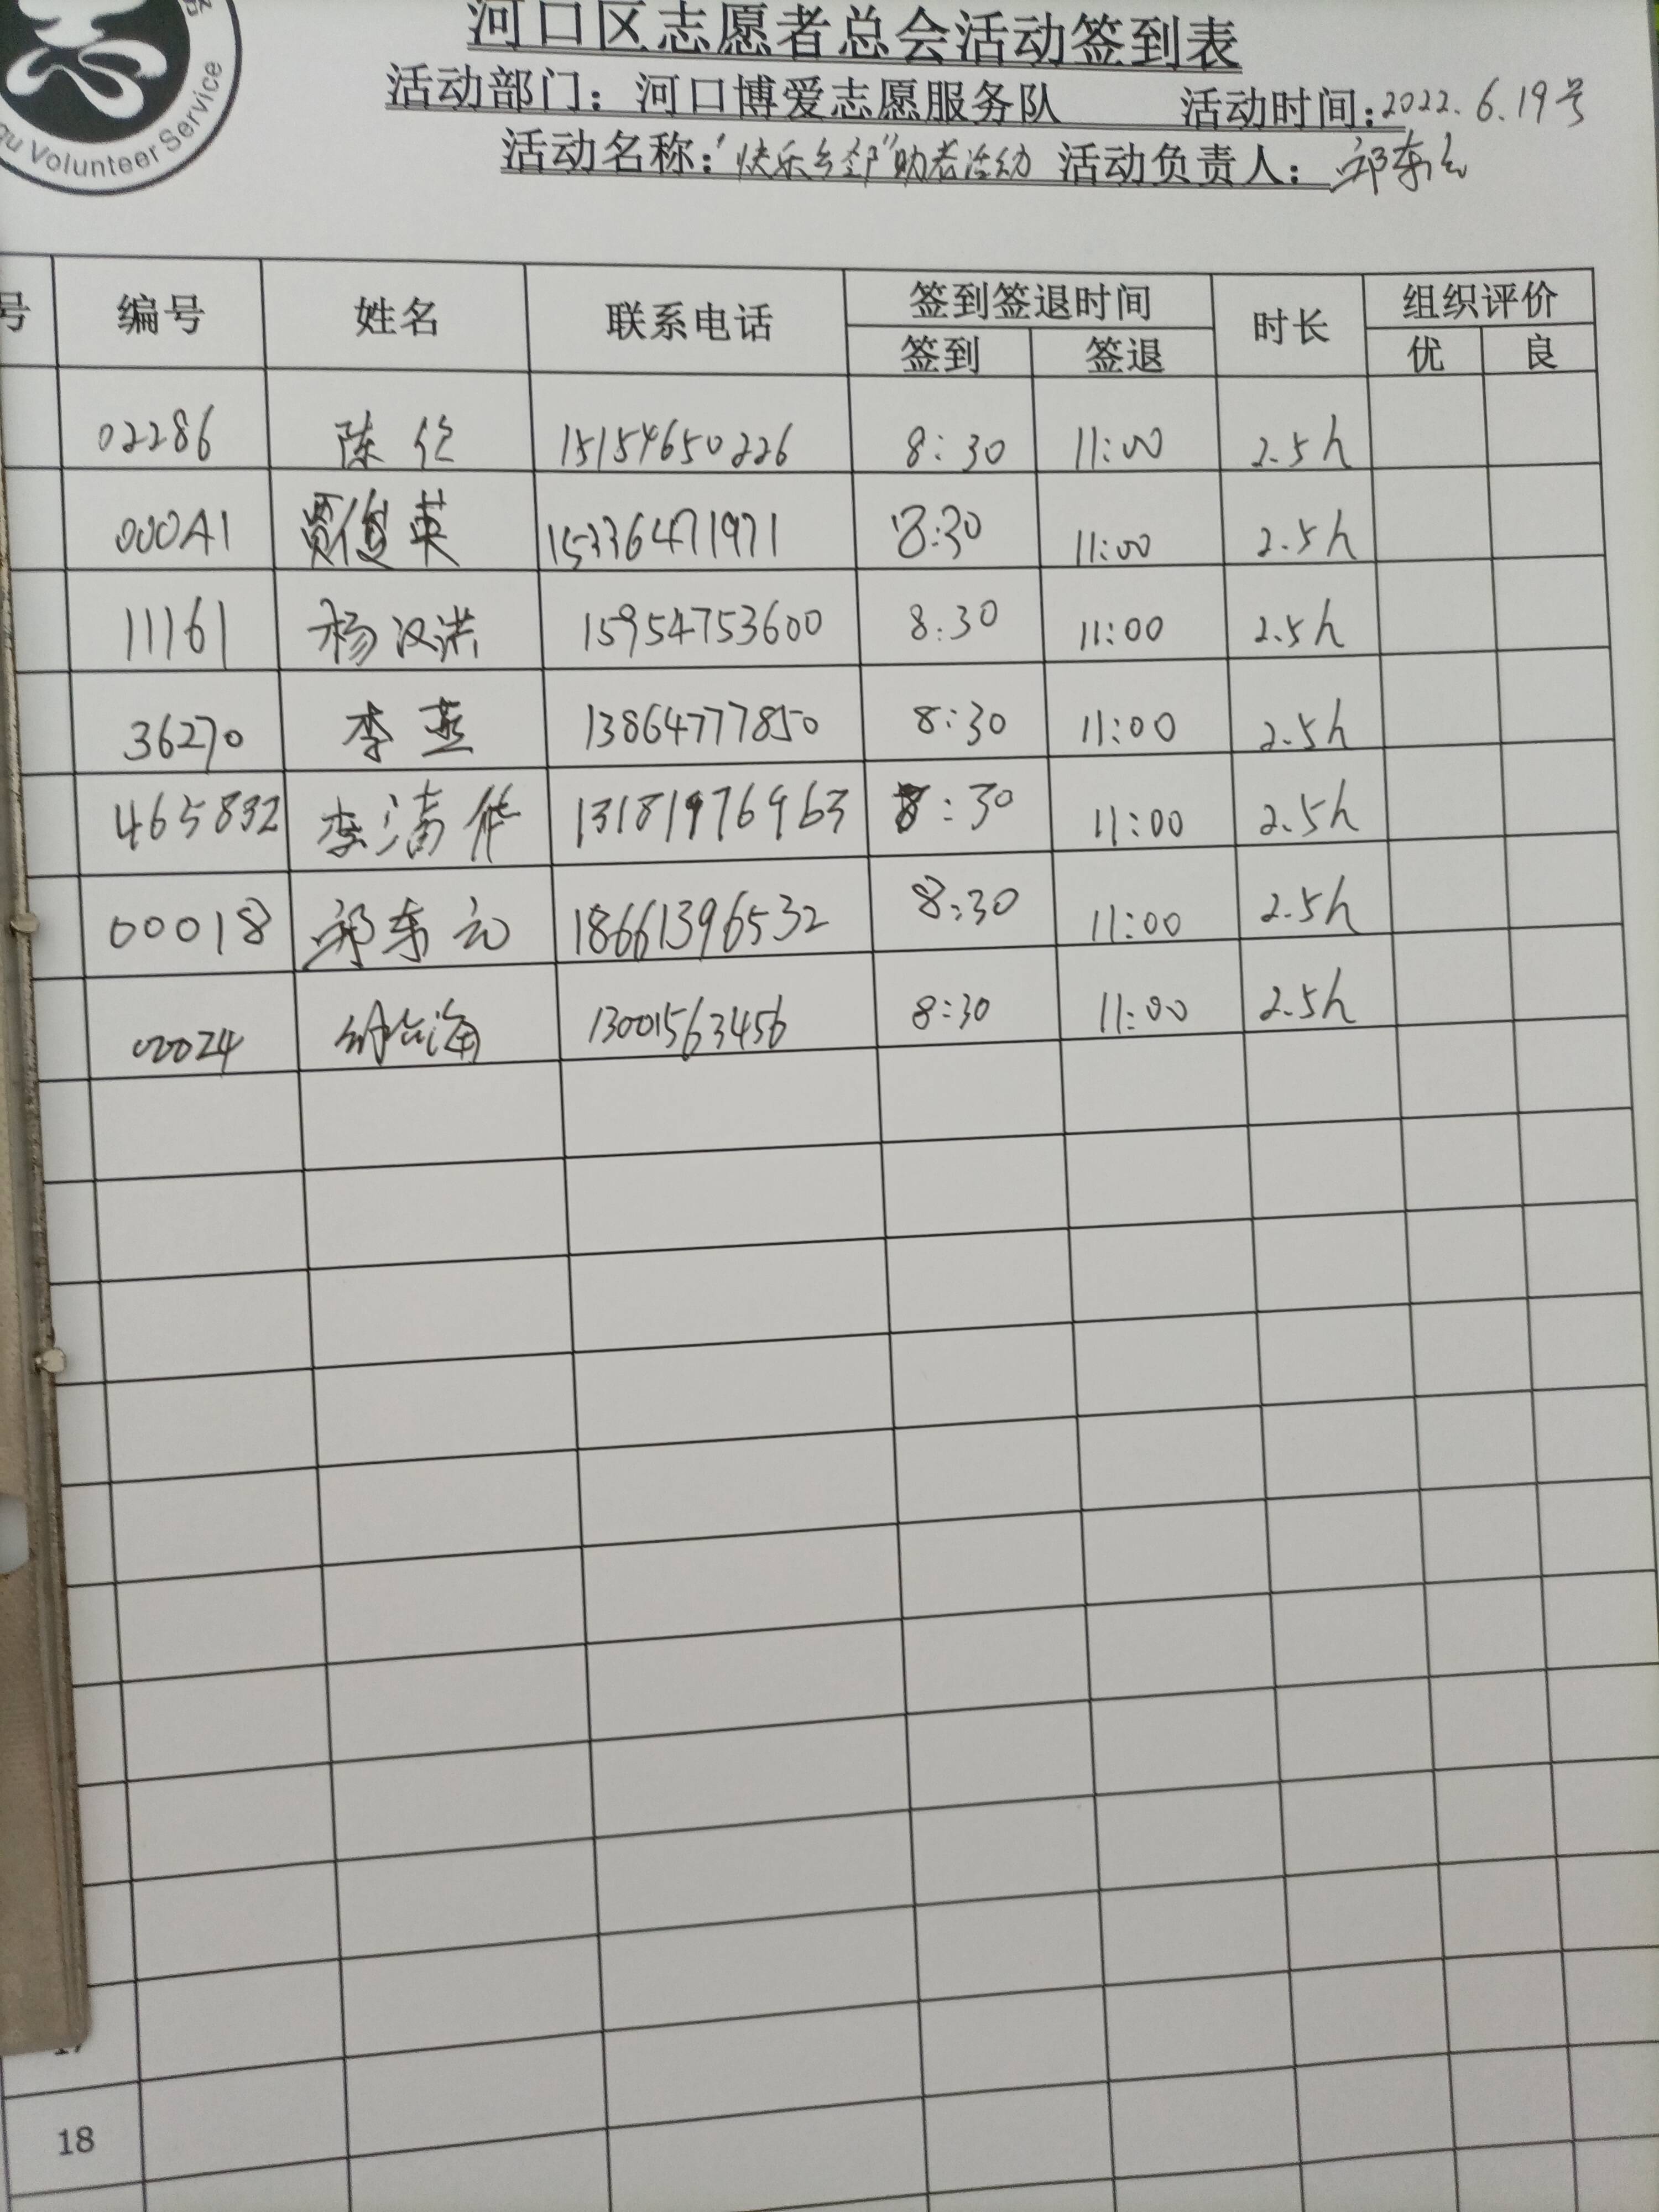 河口区志愿者总会活动签到表
gu Volunteer Service
活动部门：河口博爱志愿服务队 活动时间：2022.6.19号
活动名称："快乐乡邻"助老活动 活动负责人：邱东
号 编号 姓名 联系电话 签到签退时间 时长 组织评价
签到 签退 优 良
02286 陈 15154650226 8:30 11:00 2.5h
000A1 贾俊英 15336471971 8:30 11:00 2.5h
11161 杨汉洪 15954753600 8:30 11:00 2.5h
36270 李燕 13864777850 8:30 11:00 2.5h
465832 李清 13181976963 8:30 11:00 2.5h
00018 邱东 18661396532 8:30 11:00 2.5h
00024 海 13001563456 8:30 11:00 2.5h
17
18